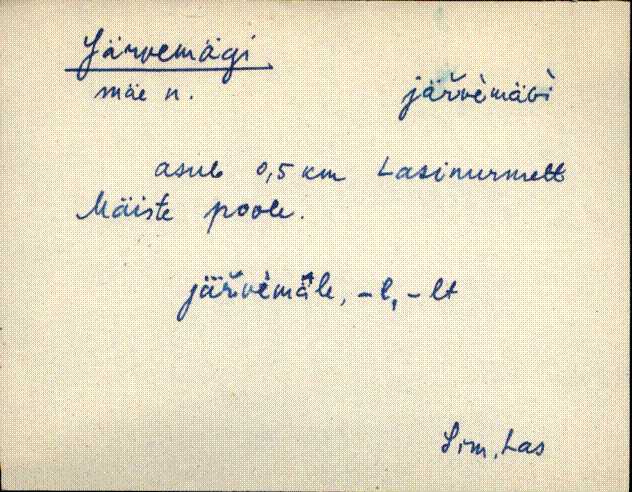 Järvemägi
mäe n. järvèmäġì
asub 0,5 km Lasinurmelt
Mäiste poole.
järvèmäle, -l, -lt
Sim, Las